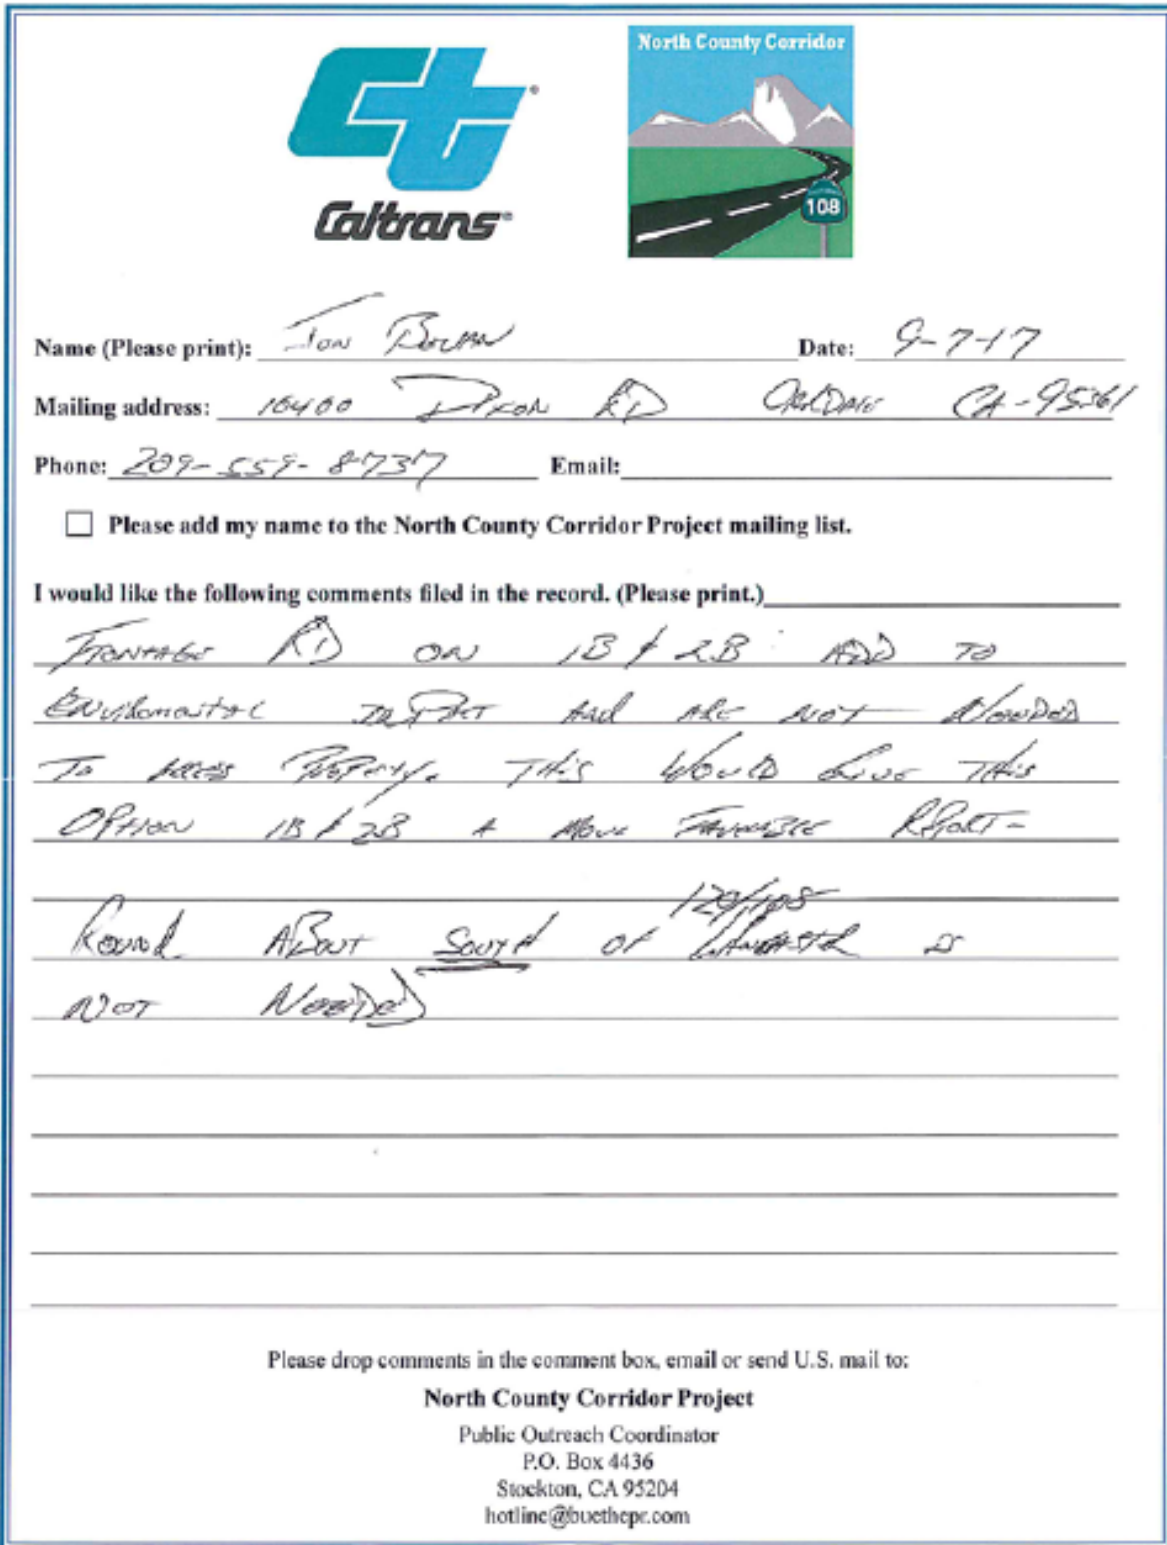 North County Corridor
Ct
Caltrans
108
Name (Please print): Jon Date: 9-7-17
Mailing address: 10400 Dixon RD Oakdale CA-95361
Phone: 209-559-8737 Email:
Please add my name to the North County Corridor Project mailing list.
I would like the following comments filed in the record. (Please print.)
Frontage RD on 1B & 2B ADD TO
and are not Needed
To Access Property. This Would Give This
Option 1B & 2B A More Favorable Report-
120/108
Round About South of is
Not Needed
Please drop comments in the comment box, email or send U.S. mail to:
North County Corridor Project
Public Outreach Coordinator
P.O. Box 4436
Stockton, CA 95204
hotline@buethepr.com